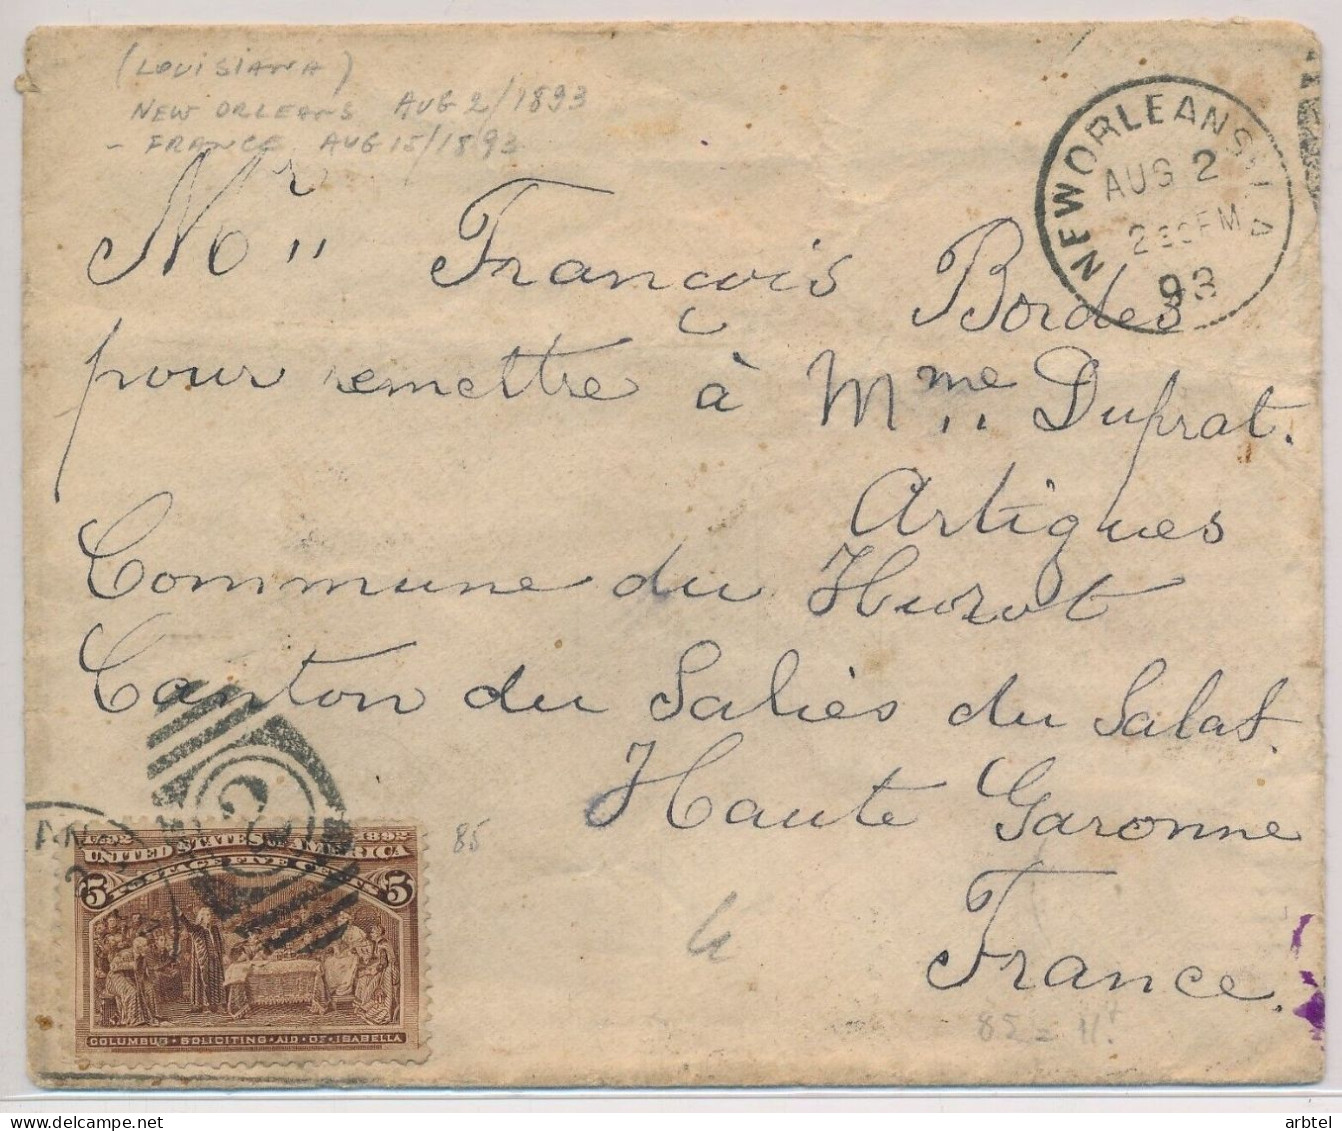 (LOUISIANA)
NEW ORLEANS AUG 2/1893
- FRANCE AUG 15/1893
NEW ORLEANS LA
AUG 2
2 30 PM
93
Mr François Bordes
pour remettre à Mme Duprat.
Artigues
Commune du Hurot
Canton du Saliès du Salat.
Haute Garonne
France.
1492 1892
UNITED STATES OF AMERICA
POSTAGE FIVE CENTS
5 5
COLUMBUS · SOLICITING · AID · OF · ISABELLA
85
85 =
arbtel